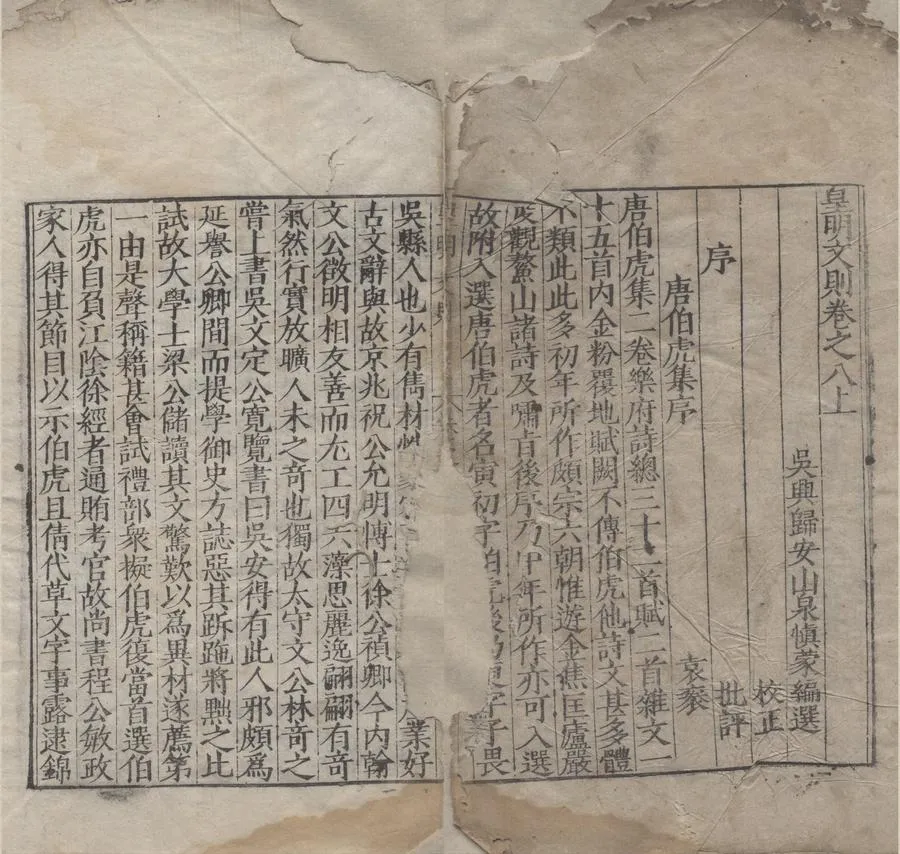 皇明文則卷之八上
吳興歸安山泉慎蒙編選
校正
批評
序
唐伯虎集序
袁袠
唐伯虎集二卷樂府詩總三十二首賦二首雜文一
十五首內金粉覆地賦闕不傳伯虎他詩文甚多體
不類此此多初年所作頗宗六朝惟遊金焦匡廬嚴
觀鰲山諸詩及嘯旨後序乃中年所作亦可入選
故附入選唐伯虎者名寅初字伯虎後更字子畏
吳縣人也少有雋材 業好
古文辭與故京兆祝公允明博士徐公禎卿今內翰
文公徵明相友善而尤工四六藻思麗逸翩翩有奇
氣然行實放曠人未之奇也獨故太守文公林奇之
嘗上書吳文定公寬覽書曰吳安得有此人邪頗為
延譽公卿間而提學御史方誌惡其跅跪將黜之比
試故大學士梁公儲讀其文驚歎以為異材遂薦第
一由是聲稱籍甚會試禮部眾擬伯虎復當首選伯
虎亦自負江陰徐經者通賄考官故尚書程公敏政
家人得其節目以示伯虎且倩代草文字事露逮錦